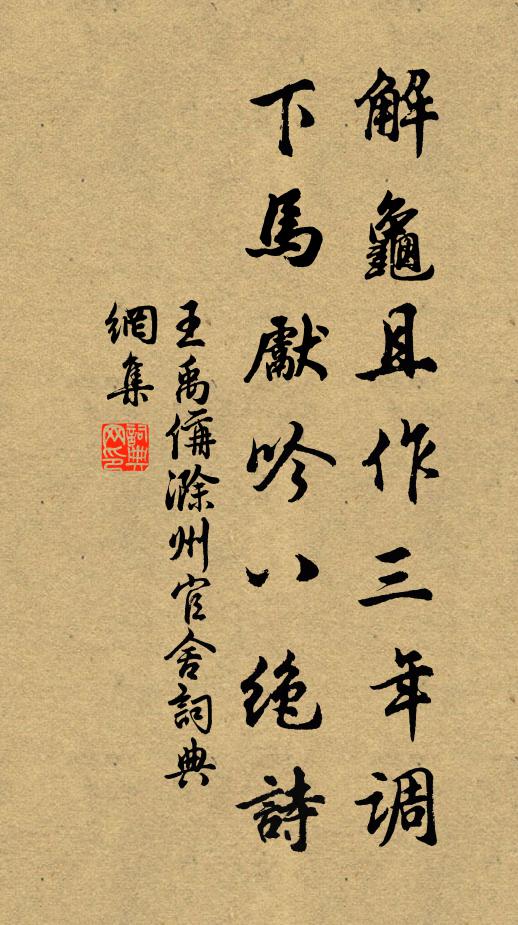 解龜且作三年调
下馬獻吟八绝詩
王禹偁滁州官舍詞典
網集
詞典网印